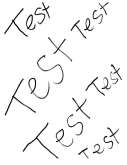 Test
Test
Test
Test
Test
Test